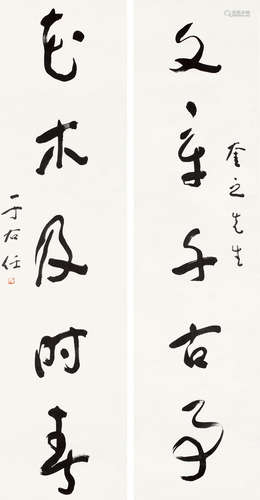 奎之先生
文章千古事
花木及时春
于右任